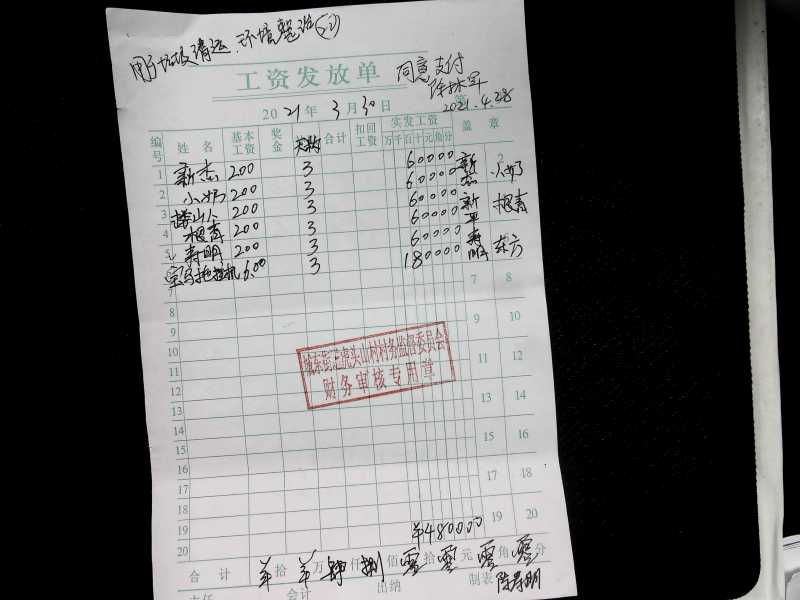 用于垃圾清运、环境整治
工资发放单
同意支付
2021.4.28
2021年3月30日
编号 姓名 基本工资 奖金 天数 合计 扣回工资 实发工资 盖章
万千百十元角分
1 新杰 200 3 60000 新杰
2 小奶 200 3 60000 小奶
3 200 3 60000 新平
4 根青 200 3 60000 根青
5 寿明 200 3 60000 寿明
宝马拖拉机 600 3 180000 东方
7 7 8
8
9 9 10
10
11 11 12
12
13 13 14
14
15 15 16
16
17 17 18
18
19 19 20
20
城东街道虎头山村村务监督委员会
财务审核专用章
¥480000
合计 拾 万 肆仟捌佰零拾零元零角零分
主任 会计 出纳 制表 陈寿明